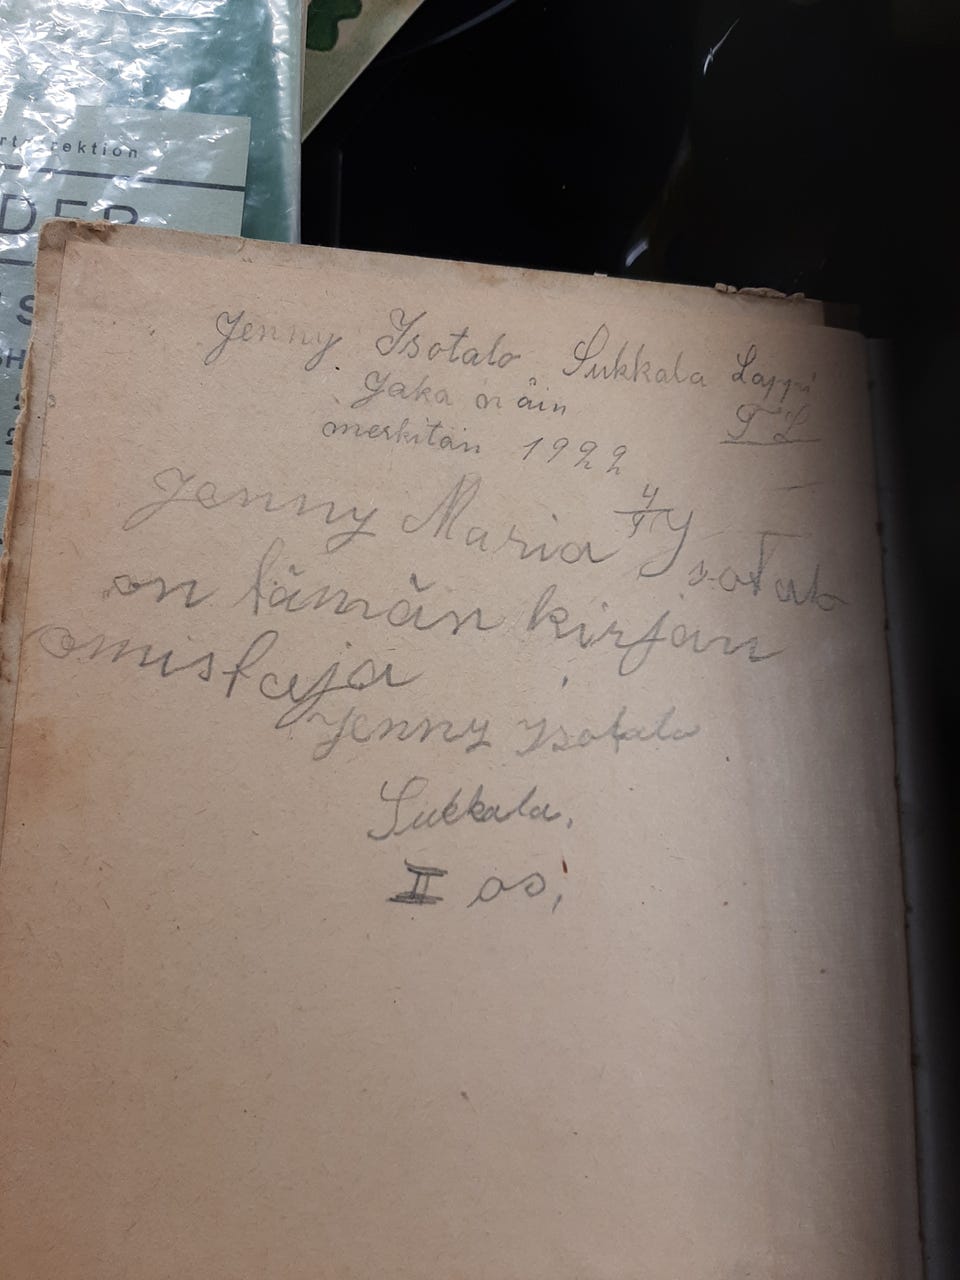 ektion
DER
S
Jenny Isotalo Sukkala Lappi
Joka näin
T L
merkitän 1922
4/5
Jenny Maria Isotalo
on tämän kirjan
omistaja
Jenny Isotalo
Sukkala,
II os,